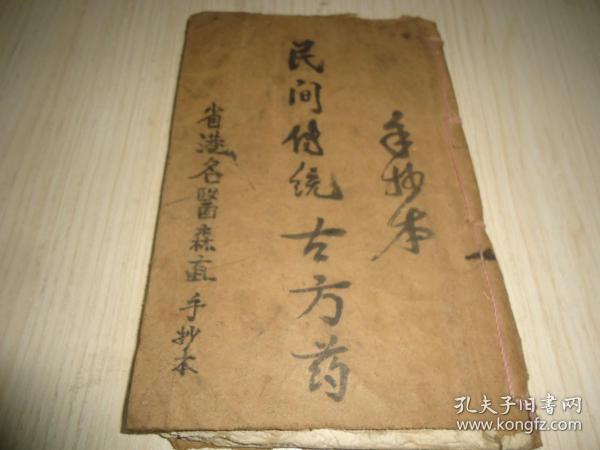 手抄本
民间传统古方药
省港名醫森直手抄本
孔夫子旧书网
www.kongfz.com